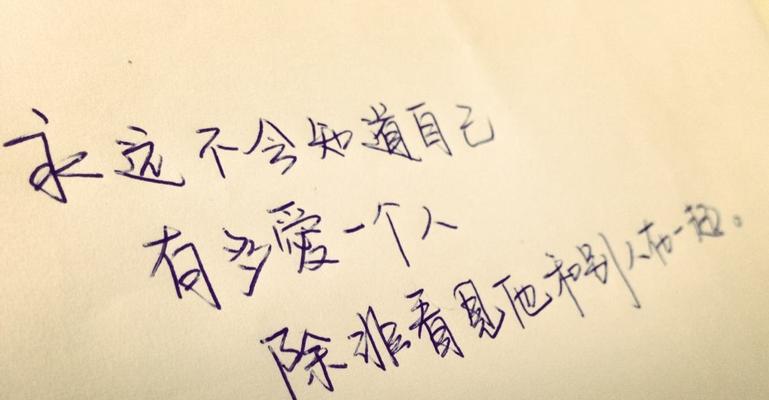 永远不会知道自己
有多爱一个人
除非看见他和别人在一起。